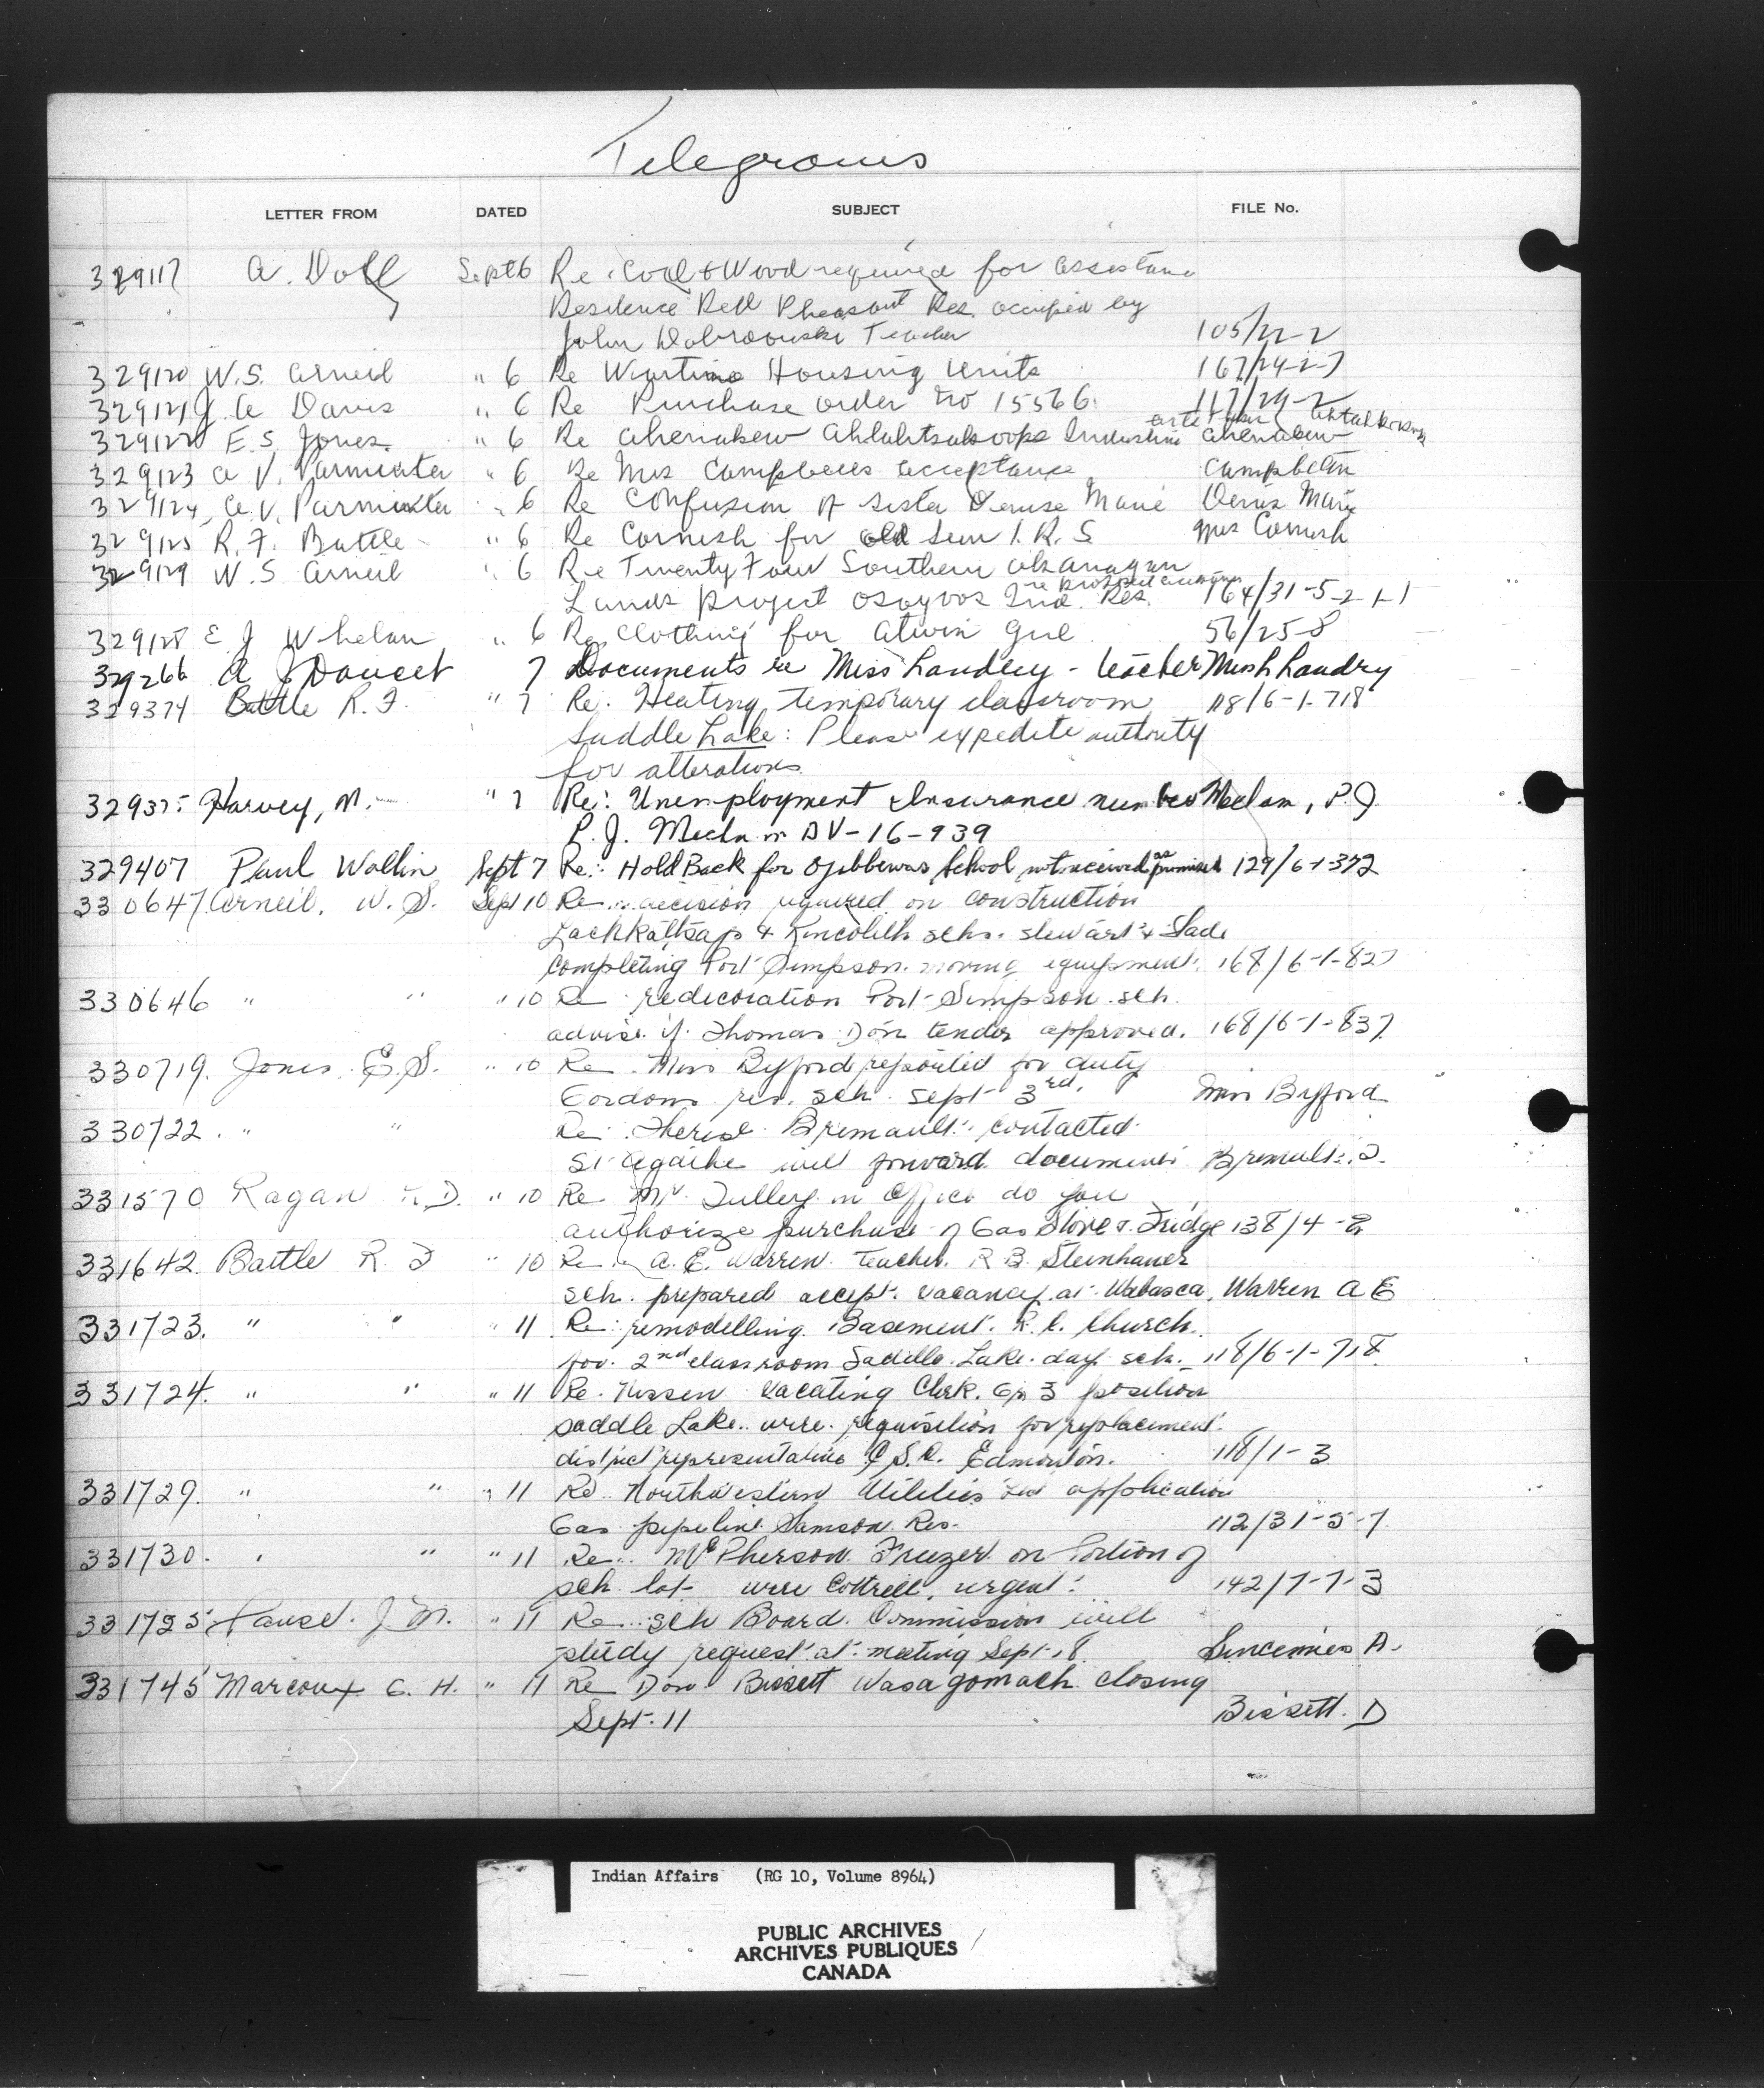 Telegrams
LETTER FROM DATED SUBJECT FILE No.
329117 A. Doll Sept 6 Re Coal & Wood required for assistant
Residence Red Pheasant Res. occupied by
John Teacher 105/22-2
329120 W.S. Arneil " 6 Re Wartime Housing Units 167/24-2-7
329121 J. A Davis " 6 Re Purchase order No 15566 117/29-2
329122 E.S. Jones " 6 Re Ahenakew Ahenakew
329123 A V. Parminter " 6 Re Mrs Campbells acceptance Campbell
329124 A.V. Parminter " 6 Re Confusion of Sister Denise Marie Denis Marie
329125 R.F. Battle " 6 Re Cornish for old Sun I.R.S Mrs Cornish
329129 W.S Arneil " 6 Re Twenty Four Southern Okanagan
Lands project Osoyoos Ind. Res. 164/31-5-2-1-1
329128 E J Whelan " 6 Re Clothing for girl 56/25-8
329266 A J Doucet 7 Documents re Miss Landry - teacher Miss Landry
329374 Battle R.F. " 7 Re: Heating temporary classroom 118/6-1-718
Saddle Lake: Please expedite authority
for alterations
32937 Harvey, M. " 7 Re: Unemployment Insurance number P.J.
P.J. DV-16-939
329407 Paul Wallin Sept 7 Re: Hold Back for Ojibbewas School not received as promised 129/6-1-372
330647 Arneil. W.S. Sept 10 Re decision required on construction
Lachkaltsap & Kincolith schs. Stewart & Slade
completing Port Simpson. moving equipment. 168/6-1-827
330646 " " " 10 Re redecoration Port Simpson sch.
advise if Thomas Don tender approved. 168/6-1-837
330719. Jones. E.S. " 10 Re. Miss Byford reported for duty
Gordons res. sch. Sept 3rd. Miss Byford
330722. " " Re. Therese Bremault contacted
St Agathe will forward documents
331570 Ragan D. " 10 Re Mr. Tulley in Office do you
authorize purchase of Gas Stove & Fridge 138/4-2
331642 Battle R. F " 10 Re A. E. Warren. Teacher. R B. Steinhauer
sch. prepared accept. vacancy at Wabasca. Warren A E
331723. " " " 11 Re: remodelling Basement. R.C. Church.
for 2nd classroom Saddle Lake day sch. 118/6-1-718
331724. " " " 11 Re. Nissen vacating Clerk. Gr 3 position
Saddle Lake. wire. requisition for replacement
district representative C.S.C. Edmonton. 118/1-3
331729. " " " 11 Re. Northwestern Utilities Ltd application
Gas pipeline Samson Res. 112/31-5-7
331730. " " " 11 Re. McPherson Freezer on Portion of
sch lot wire Cottrell. urgent. 142/7-7-3
331735 J M. " 11 Re. Sch Board. Commission will
study request at meeting Sept 18. A.
331745 Marcoux C. H. " 11 Re Don Bissett Wasagomach closing
Sept. 11 Bissett. D
Indian Affairs (RG 10, Volume 8964)
PUBLIC ARCHIVES
ARCHIVES PUBLIQUES
CANADA